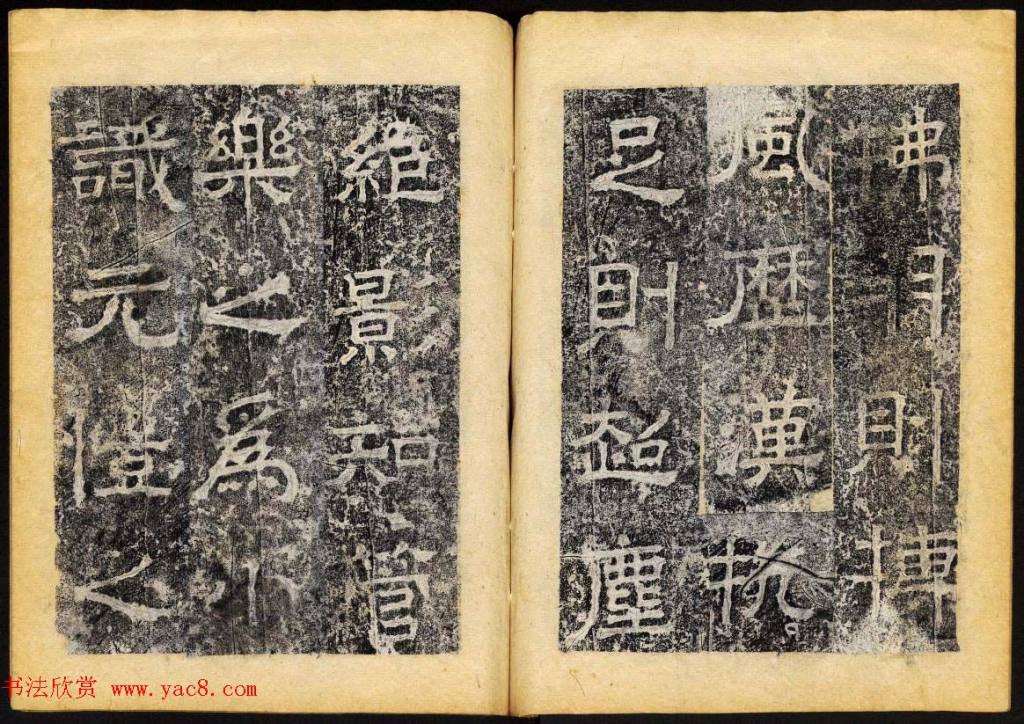 拂羽則摶
風歷漢抗
足則超塵
絕景知管
樂之為小
識元愷之
书法欣赏 www.yac8.com